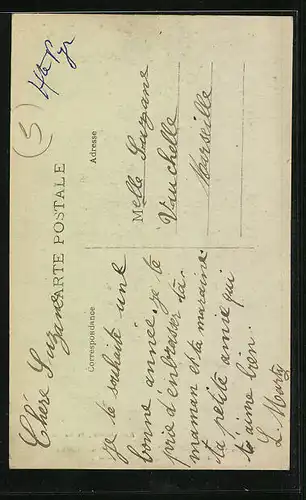 (5)
CARTE POSTALE
Correspondance
Adresse
Chère Suzanne
je te souhaite une
bonne année. je te
prie d'enbrasser ta
maman et ta maraine.
ta petite amie qui
t'aime bien.
L. Marty
Melle Suzzane
Vauchelle
Marseille